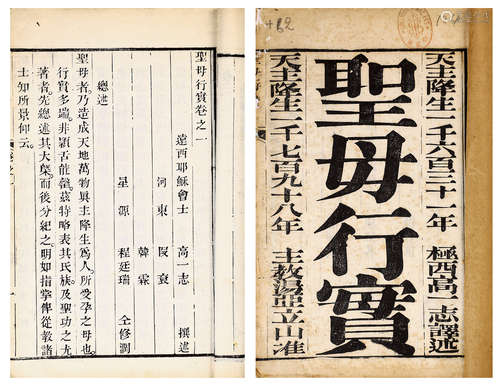 天主降生一千六百三十一年 極西高一志譯述
聖母行實
天主降生一千七百九十八年 主教湯亞立山准
聖母行實卷之一
遠西耶穌會士 高一志 撰述
河東 段袞
韓霖
星源 程廷瑞 仝修潤
總述
聖母者乃造成天地萬物眞主降生爲人所受孕之母也
行實多端非顯舌能罄茲特略表其氏族及聖功之尤
著者先總述其大槩而後分紀之明如指掌俾從敎諸
士知所景仰云